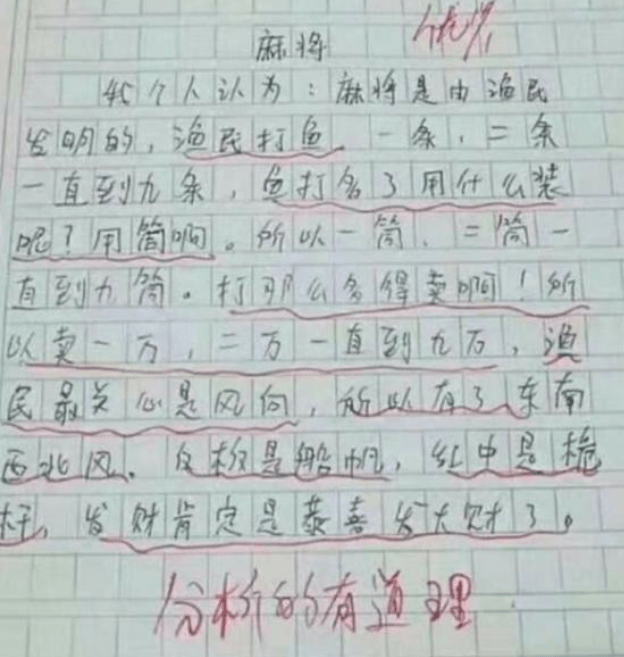 麻将
优
个人认为：麻将是由渔民
发明的，渔民打鱼，一条，二条
一直到九条，鱼打多了用什么装
呢？用筒啊。所以一筒、二筒一
直到九筒。打那么多得卖啊！所
以卖一万，二万一直到九万，渔
民最关心是风向，所以有了东南
西北风。白板是船帆，红中是桅
杆，发财肯定是恭喜发大财了。
分析的有道理